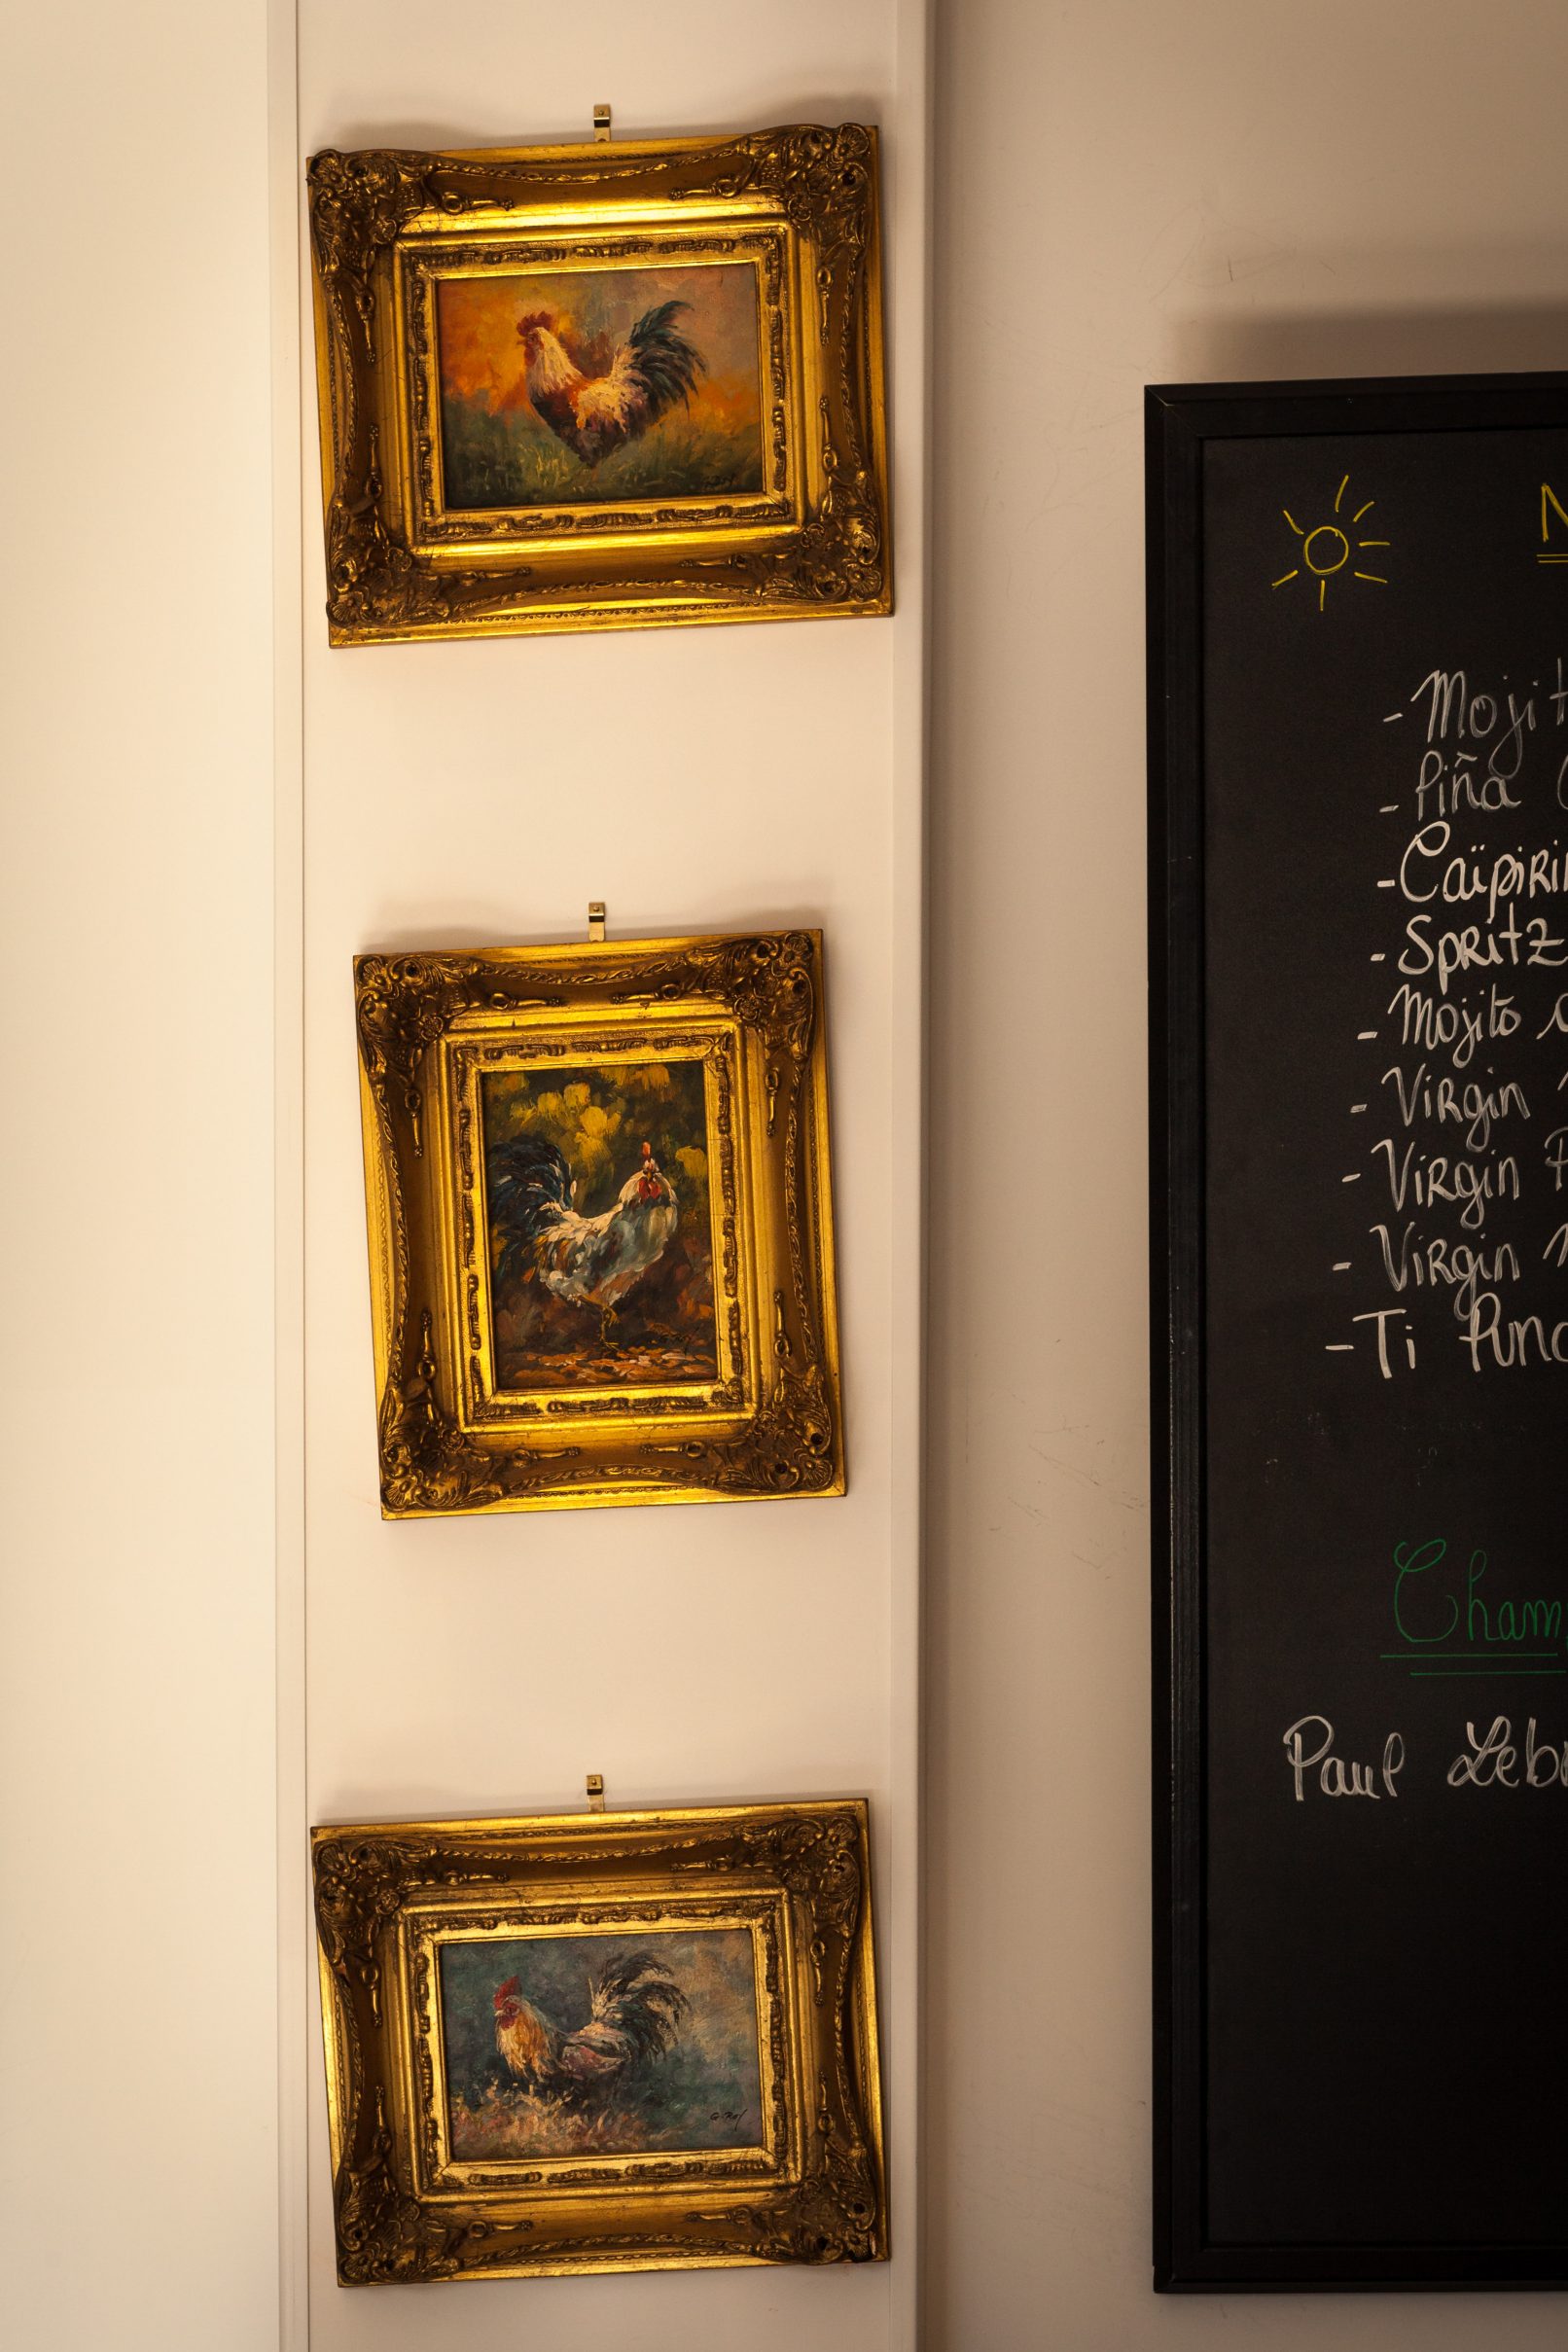 - Mojit
- Piña
- Caïpirin
- Spritz
- Mojito
- Virgin
- Virgin
- Virgin
- Ti Punc
Cham
Paul Leb